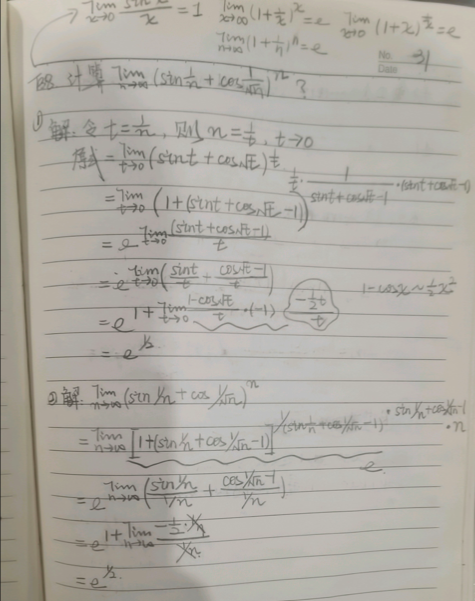 lim x→0 sin x / x = 1 lim x→∞ (1+1/x)^x = e lim x→0 (1+x)^(1/x) = e
lim n→∞ (1+1/n)^n = e
No. 31
Date
计算 lim n→∞ (sin 1/n + cos 1/√n)^n ?
① 解: 令 t = 1/n, 则 n = 1/t, t→0
原式 = lim t→0 (sint + cos√t)^(1/t)
= lim t→0 (1+(sint+cos√t-1))^(1/t · 1/(sint+cos√t-1) · (sint+cos√t-1))
= e^(lim t→0 (sint+cos√t-1)/t)
= e^(lim t→0 (sint/t + (cos√t-1)/t)) 1-cosx ~ 1/2 x²
= e^(1+lim t→0 (1-cos√t)/t · (-1)) (-1/2 t)/t
= e^(1/2)
② 解: lim n→∞ (sin 1/n + cos 1/√n)^n
= lim n→∞ [1+(sin 1/n + cos 1/√n - 1)]^(1/(sin 1/n + cos 1/√n - 1) · sin 1/n + cos 1/√n - 1 · n)
e
= e^(lim n→∞ ((sin 1/n)/(1/n) + (cos 1/√n - 1)/(1/n)))
= e^(1+lim n→∞ (-1/2 · 1/n)/(1/n))
= e^(1/2)